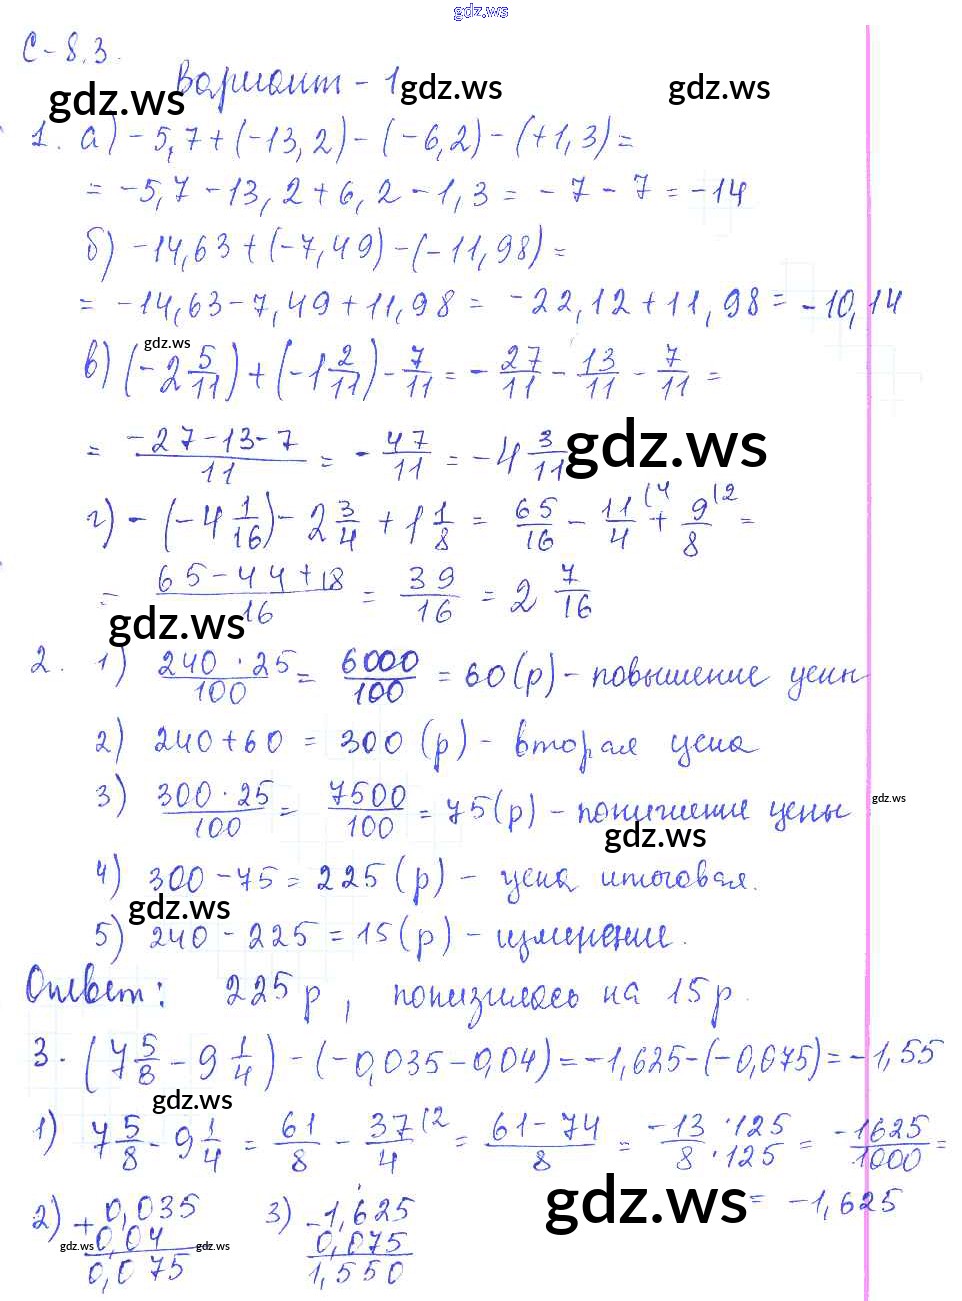 gdz.ws
С-8.3.
Вариант-1
gdz.ws gdz.ws gdz.ws
1. а) -5,7+(-13,2)-(-6,2)-(+1,3)=
= -5,7-13,2+6,2-1,3= -7-7=-14
б) -14,63+(-7,49)-(-11,98)=
= -14,63-7,49+11,98= -22,12+11,98=-10,14
gdz.ws
в) (-2 5/11)+(-1 2/11)-7/11=-27/11-13/11-7/11=
= (-27-13-7)/11=-47/11=-4 3/11
gdz.ws
г) -(-4 1/16)-2 3/4+1 1/8= 65/16-11/4(4+9/8(2=
= (65-44+18)/16=39/16=2 7/16
gdz.ws
2. 1) (240·25)/100=6000/100=60(р)-повышение цены
2) 240+60=300(р)-вторая цена
3) (300·25)/100=7500/100=75(р)-понижение цены
gdz.ws
gdz.ws
4) 300-75=225(р)-цена итоговая.
gdz.ws
5) 240-225=15(р)-изменение.
Ответ: 225р, понизилась на 15р.
3. (7 5/8-9 1/4)-(-0,035-0,04)=-1,625-(-0,075)=-1,55
gdz.ws
1) 7 5/8-9 1/4=61/8-37/4(2=(61-74)/8=(-13·125)/(8·125)=-1625/1000=
= -1,625
gdz.ws
2) + 0,035
0,04
0,075
3) -1,625
0,075
1,550
gdz.ws gdz.ws